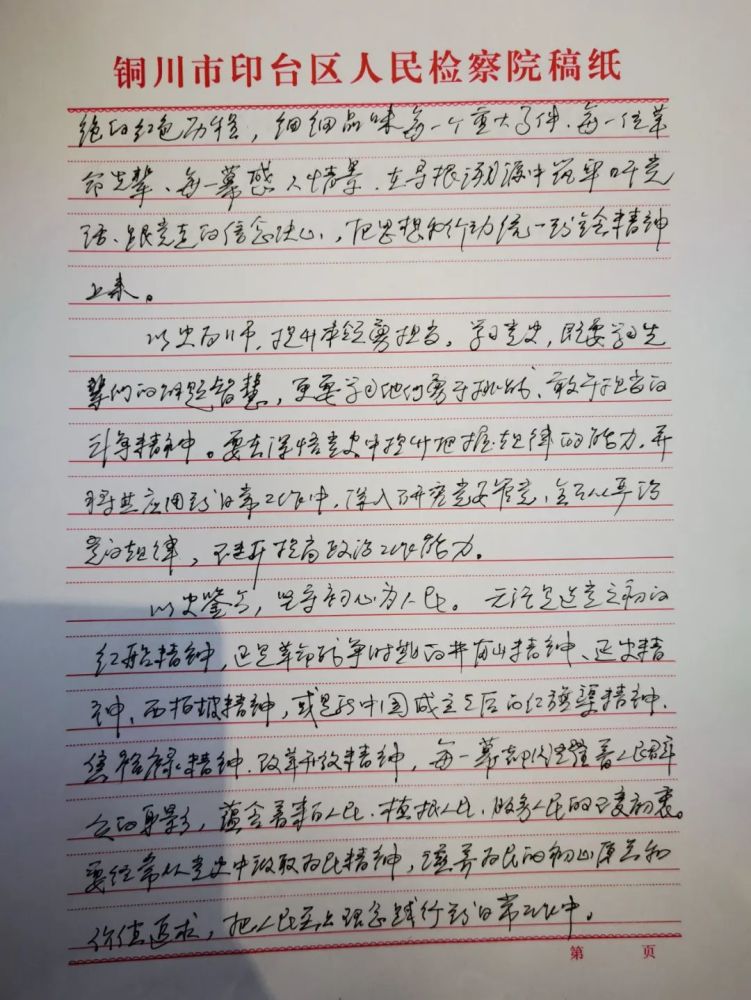 铜川市印台区人民检察院稿纸
绝的红色历程，细细品味每一个重大事件、每一位革
命先辈、每一幕感人情景，在寻根溯源中筑牢听党
话、跟党走的信念决心，把思想和行动统一到全会精神
上来。
以史为师，提升本领勇担当。学习党史，既要学习先
辈们的解题智慧，更要学习他们勇于挑战、敢于担当的
斗争精神。要在深悟党史中提升把握规律的能力，并
将其应用到日常工作中，深入研究党要管党、全面从严治
党的规律，不断提高政治工作能力。
以史鉴今，坚守初心为人民。无论是建党之初的
红船精神，还是革命战争时期的井冈山精神、延安精
神、西柏坡精神，或是新中国成立之后的红旗渠精神、
焦裕禄精神、改革开放精神，每一幕都闪耀着人民群
众的身影，蕴含着来自人民、植根人民、服务人民的不变初衷。
要经常从党史中汲取为民精神，滋养为民的初心厚志和
价值追求，把人民至上理念践行到日常工作中。
第 页